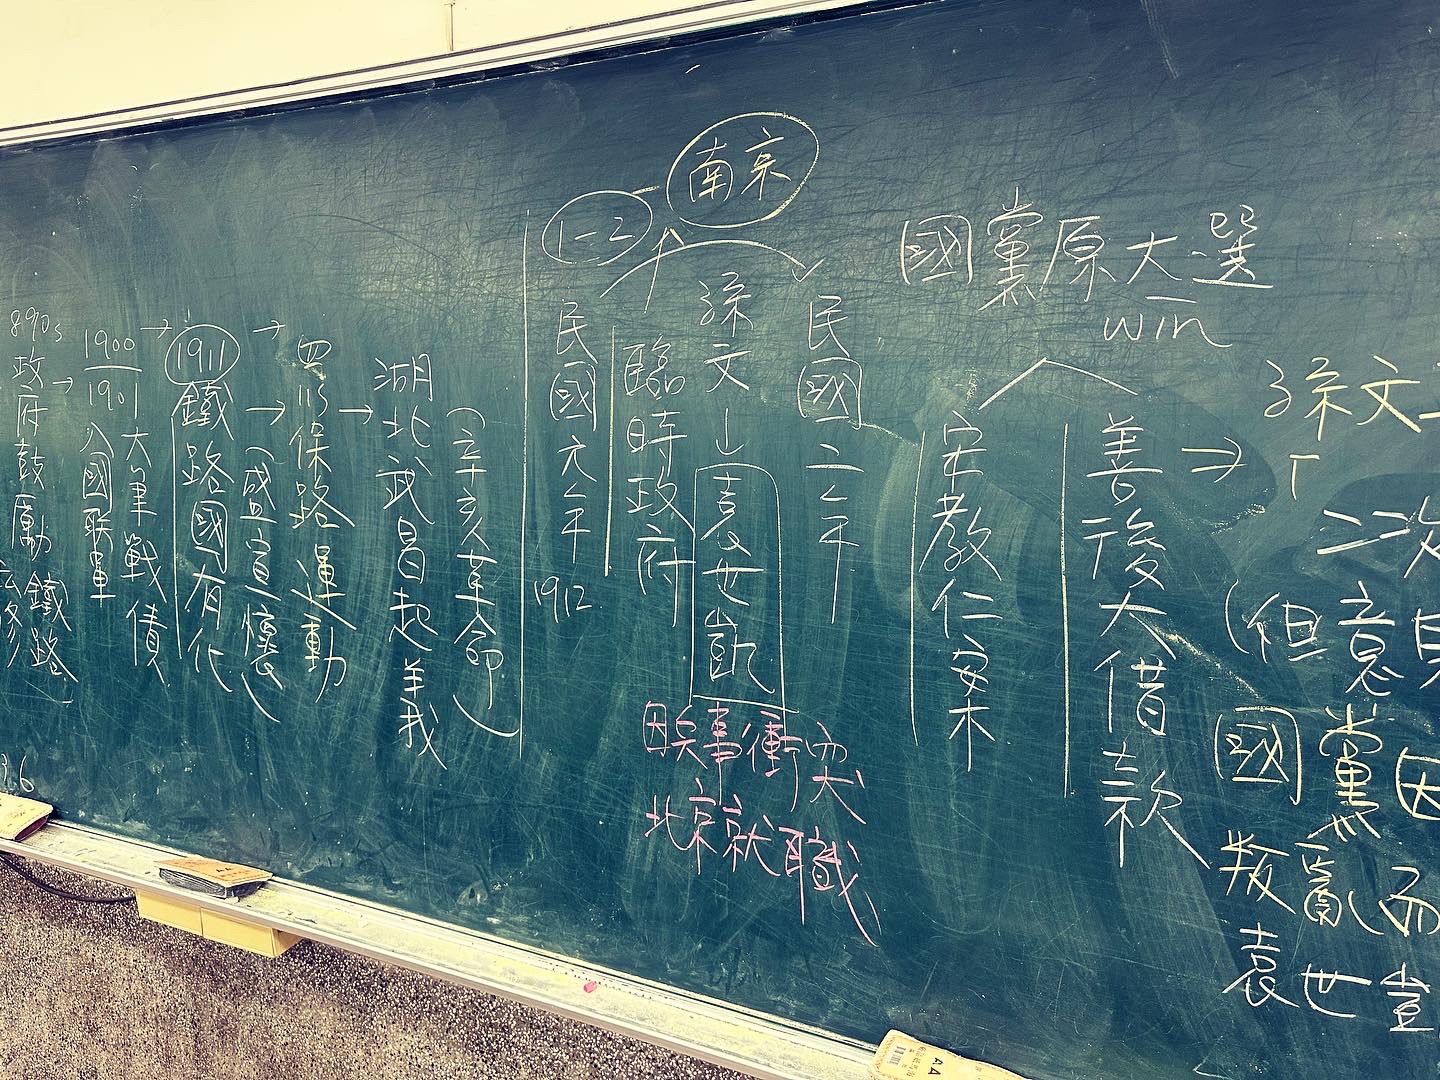 890s
政府鼓勵鐵路
1900
1901
八國聯軍
大筆戰債
1911
鐵路國有化
(盛宣懷)
四川保路運動
湖北武昌起義
(辛亥革命)
南京
1-2
民國元年 1912
臨時政府
孫文
袁世凱
因兵事衝突
北京就職
民國二年
國黨原大選
win
宋教仁案
善後大借款
孫文二
二次
(但意見
國黨因
叛亂而
袁世凱